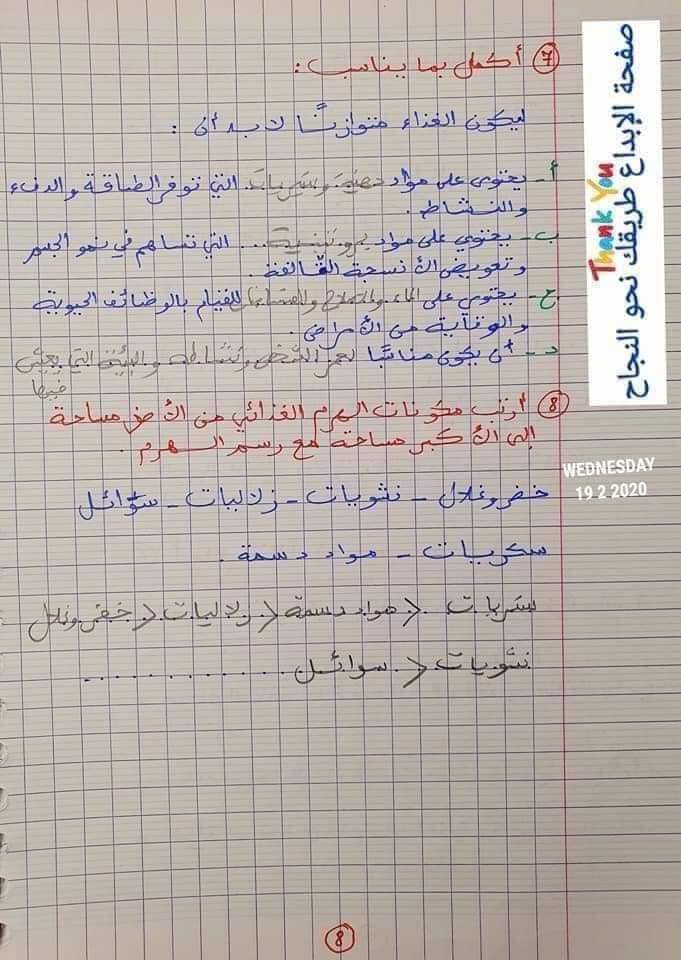 7 أكمل بما يناسب :
ليكون الغذاء متوازنًا لا بد أن :
أ - يحتوي على مواد دهنية وسكريات التي توفر الطاقة والدفء
والنشاط .
ب - يحتوي على مواد بروتينية ... التي تساهم في نمو الجسم
وتعويض الأنسجة التالفة .
ج - يحتوي على الماء والأملاح والفيتامينات للقيام بالوظائف الحيوية
والوقاية من الأمراض .
د - أن يكون مناسبًا لعمر الشخص ونشاطه والبيئة التي يعيش
فيها
8 أرتب مكونات الهرم الغذائي من الأصغر مساحة
إلى الأكبر مساحة مع رسم الهرم .
خضر وغلال - نشويات - زلاليات - سوائل
سكريات - مواد دسمة .
سكريات < مواد دسمة < زلاليات < خضر وغلال
نشويات < سوائل ............
8
صفحة الإبداع طريقك نحو النجاح
Thank You
WEDNESDAY
19 2 2020